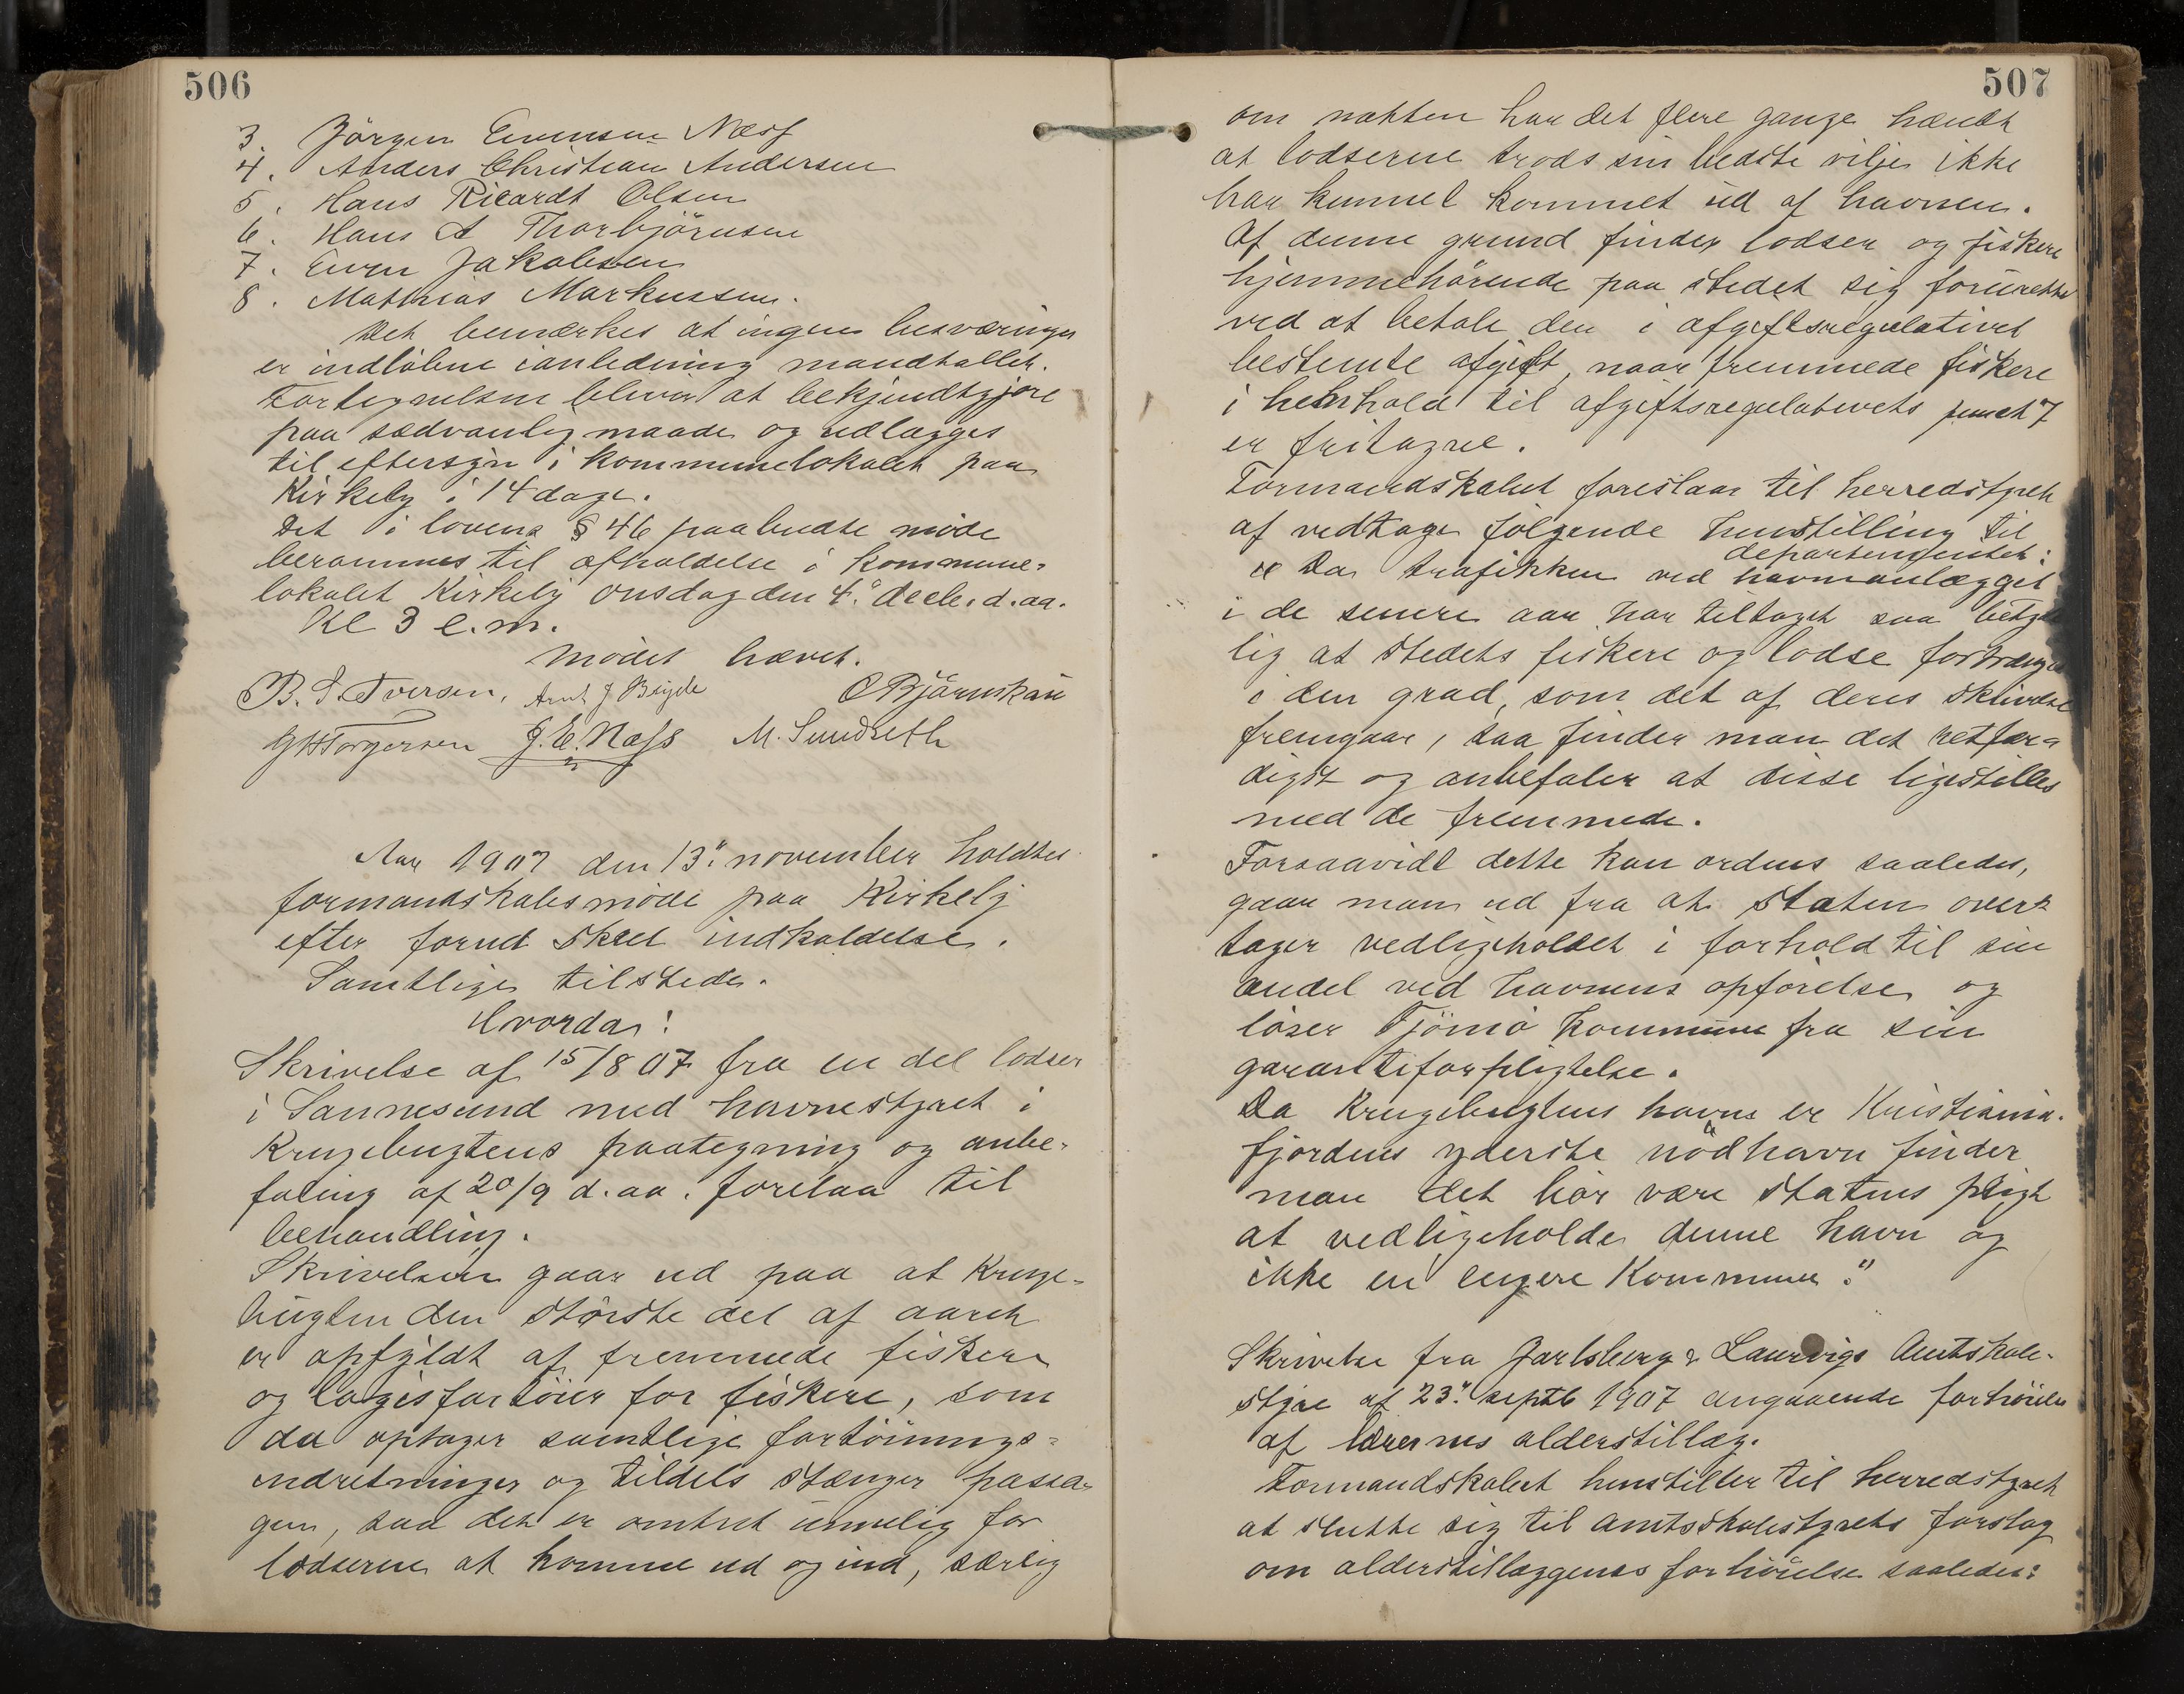 506
3. Jörgen Evensen Næss
4. Anders Christian Andersen
5. Hans Ricardt Olsen
6. Hans A Thorbjörnsen
7. Even Jakobsen
8. Mathias Markussen.
Det bemærkes at ingen besværinger
er indløbne ianledning mandtallet.
Fortegnelsen bliver at bekjendtgjøre
paa sædvanlig maade og udlægges
til eftersyn i kommunelokalet paa
Kirkeby i 14 dage.
Det i lovens § 46 paabudte møde
berammes til afholdelse i kommune-
lokalet Kirkeby onsdag den 4. decb. d.aa.
Kl 3 e.m.
Mødet hævet.
B. S. Iversen, Arnt J Bryde O Bjärnskau
G H Torgersen J. E. Næss M. Sundseth
Aar 1907 den 13. november holdtes
formandskabsmøde paa Kirkeby
efter forud skeet indkaldelse.
Samtlige tilstede.
Hvorda:
Skrivelse af 15/8 07 fra en del lodser
i Sannesund med havnestyret i
Krugebugtens paategning og anbe-
faling af 20/9 d.aa. forelaa til
behandling.
Skrivelsen gaar ud paa at Kruge-
bugten den største del af aaret
er opfyldt af fremmede fiskere
og logisfartøier for fiskere, som
da optager samtlige fortøinings-
indretninger og tildels stænger passa-
gen, saa det er omtret umulig for
lodserne at komme ud og ind, særlig
507
om natten har det flere gange hændt
at lodserne trods sin bedste vilje ikke
har kunnet kommet ud af havnen.
Af denne grund finder lodser og fiskere
hjemmehørende paa stedet sig forurettet
ved at betale den i afgiftsregulativet
bestemte afgift, naar fremmede fiskere
i henhold til afgiftsregulativets punct 7
er fritagne.
Formandskabet foreslaar til herredstyret
af vedtage følgende henstilling til
departementet:
"Da trafikken ved havneanlægget
i de senere aar har tiltaget saa betyde
lig at stedets fiskere og lodse fortrænges
i den grad, som det af deres skrivelse
fremgaar, saa finder man det retfær-
digst og anbefaler at disse ligestilles
med de fremmede.
Forsaavidt dette kan ordnes saaledes,
gaar man ud fra at staten over-
tager vedligeholdet i forhold til sin
andel ved havnens opførelse og
løser Tjömö kommune fra sin
garantiforpligtelse.
Da Krugebugtens havn er Kristiania-
fjordens yderste nødhavn finder
man det bør være statens pligt
at vedligeholde denne havn og
ikke en engere Kommune."
Skrivelse fra Jarlsberg & Laurvigs Amtskole-
styre af 23. septb 1907 angaaende forhøielse
af lærernes alderstillæg.
Formandskabet henstiller til herredstyret
at slutte sig til amtsskolestyrets forslag
om alderstillæggenes forhøielse saaledes: